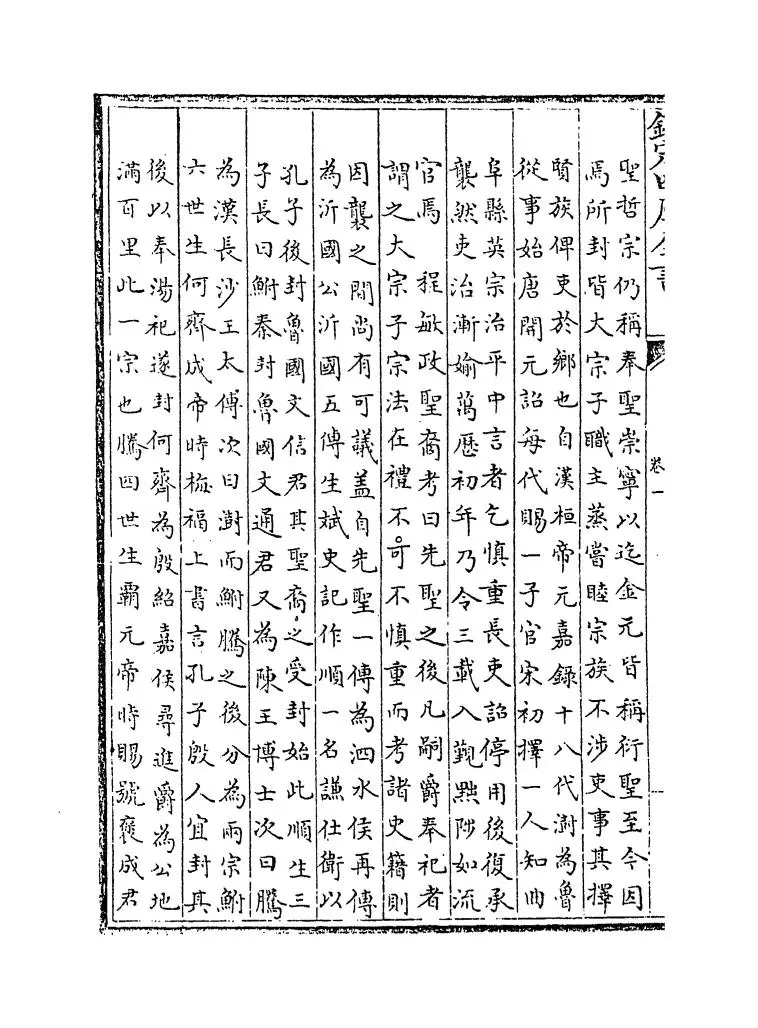 欽定四庫全書
卷一
聖哲宗仍稱奉聖崇寧以迄金元皆稱衍聖至今因
焉所封皆大宗子職主蒸嘗睦宗族不涉吏事其擇
賢族俾吏於鄉也自漢桓帝元嘉錄十八代澍為魯
從事始唐開元詔每代賜一子官宋初擇一人知曲
阜縣英宗治平中言者乞慎重長吏詔停用後復承
襲然吏治漸媮萬歷初年乃令三載入覲黜陟如流
官焉　程敏政聖裔考曰先聖之後凡嗣爵奉祀者
謂之大宗子宗法在禮不可不慎重而考諸史籍則
因襲之間尚有可議盖自先聖一傳為泗水侯再傳
為沂國公沂國五傳生斌史記作順一名謙仕衛以
孔子後封魯國文信君其聖裔之受封始此順生三
子長曰鮒秦封魯國文通君又為陳王博士次曰騰
為漢長沙王太傅次曰澍而鮒騰之後分為兩宗鮒
六世生何齊成帝時梅福上書言孔子殷人宜封其
後以奉湯祀遂封何齊為殷紹嘉侯尋進爵為公地
滿百里此一宗也騰四世生霸元帝時賜號褒成君